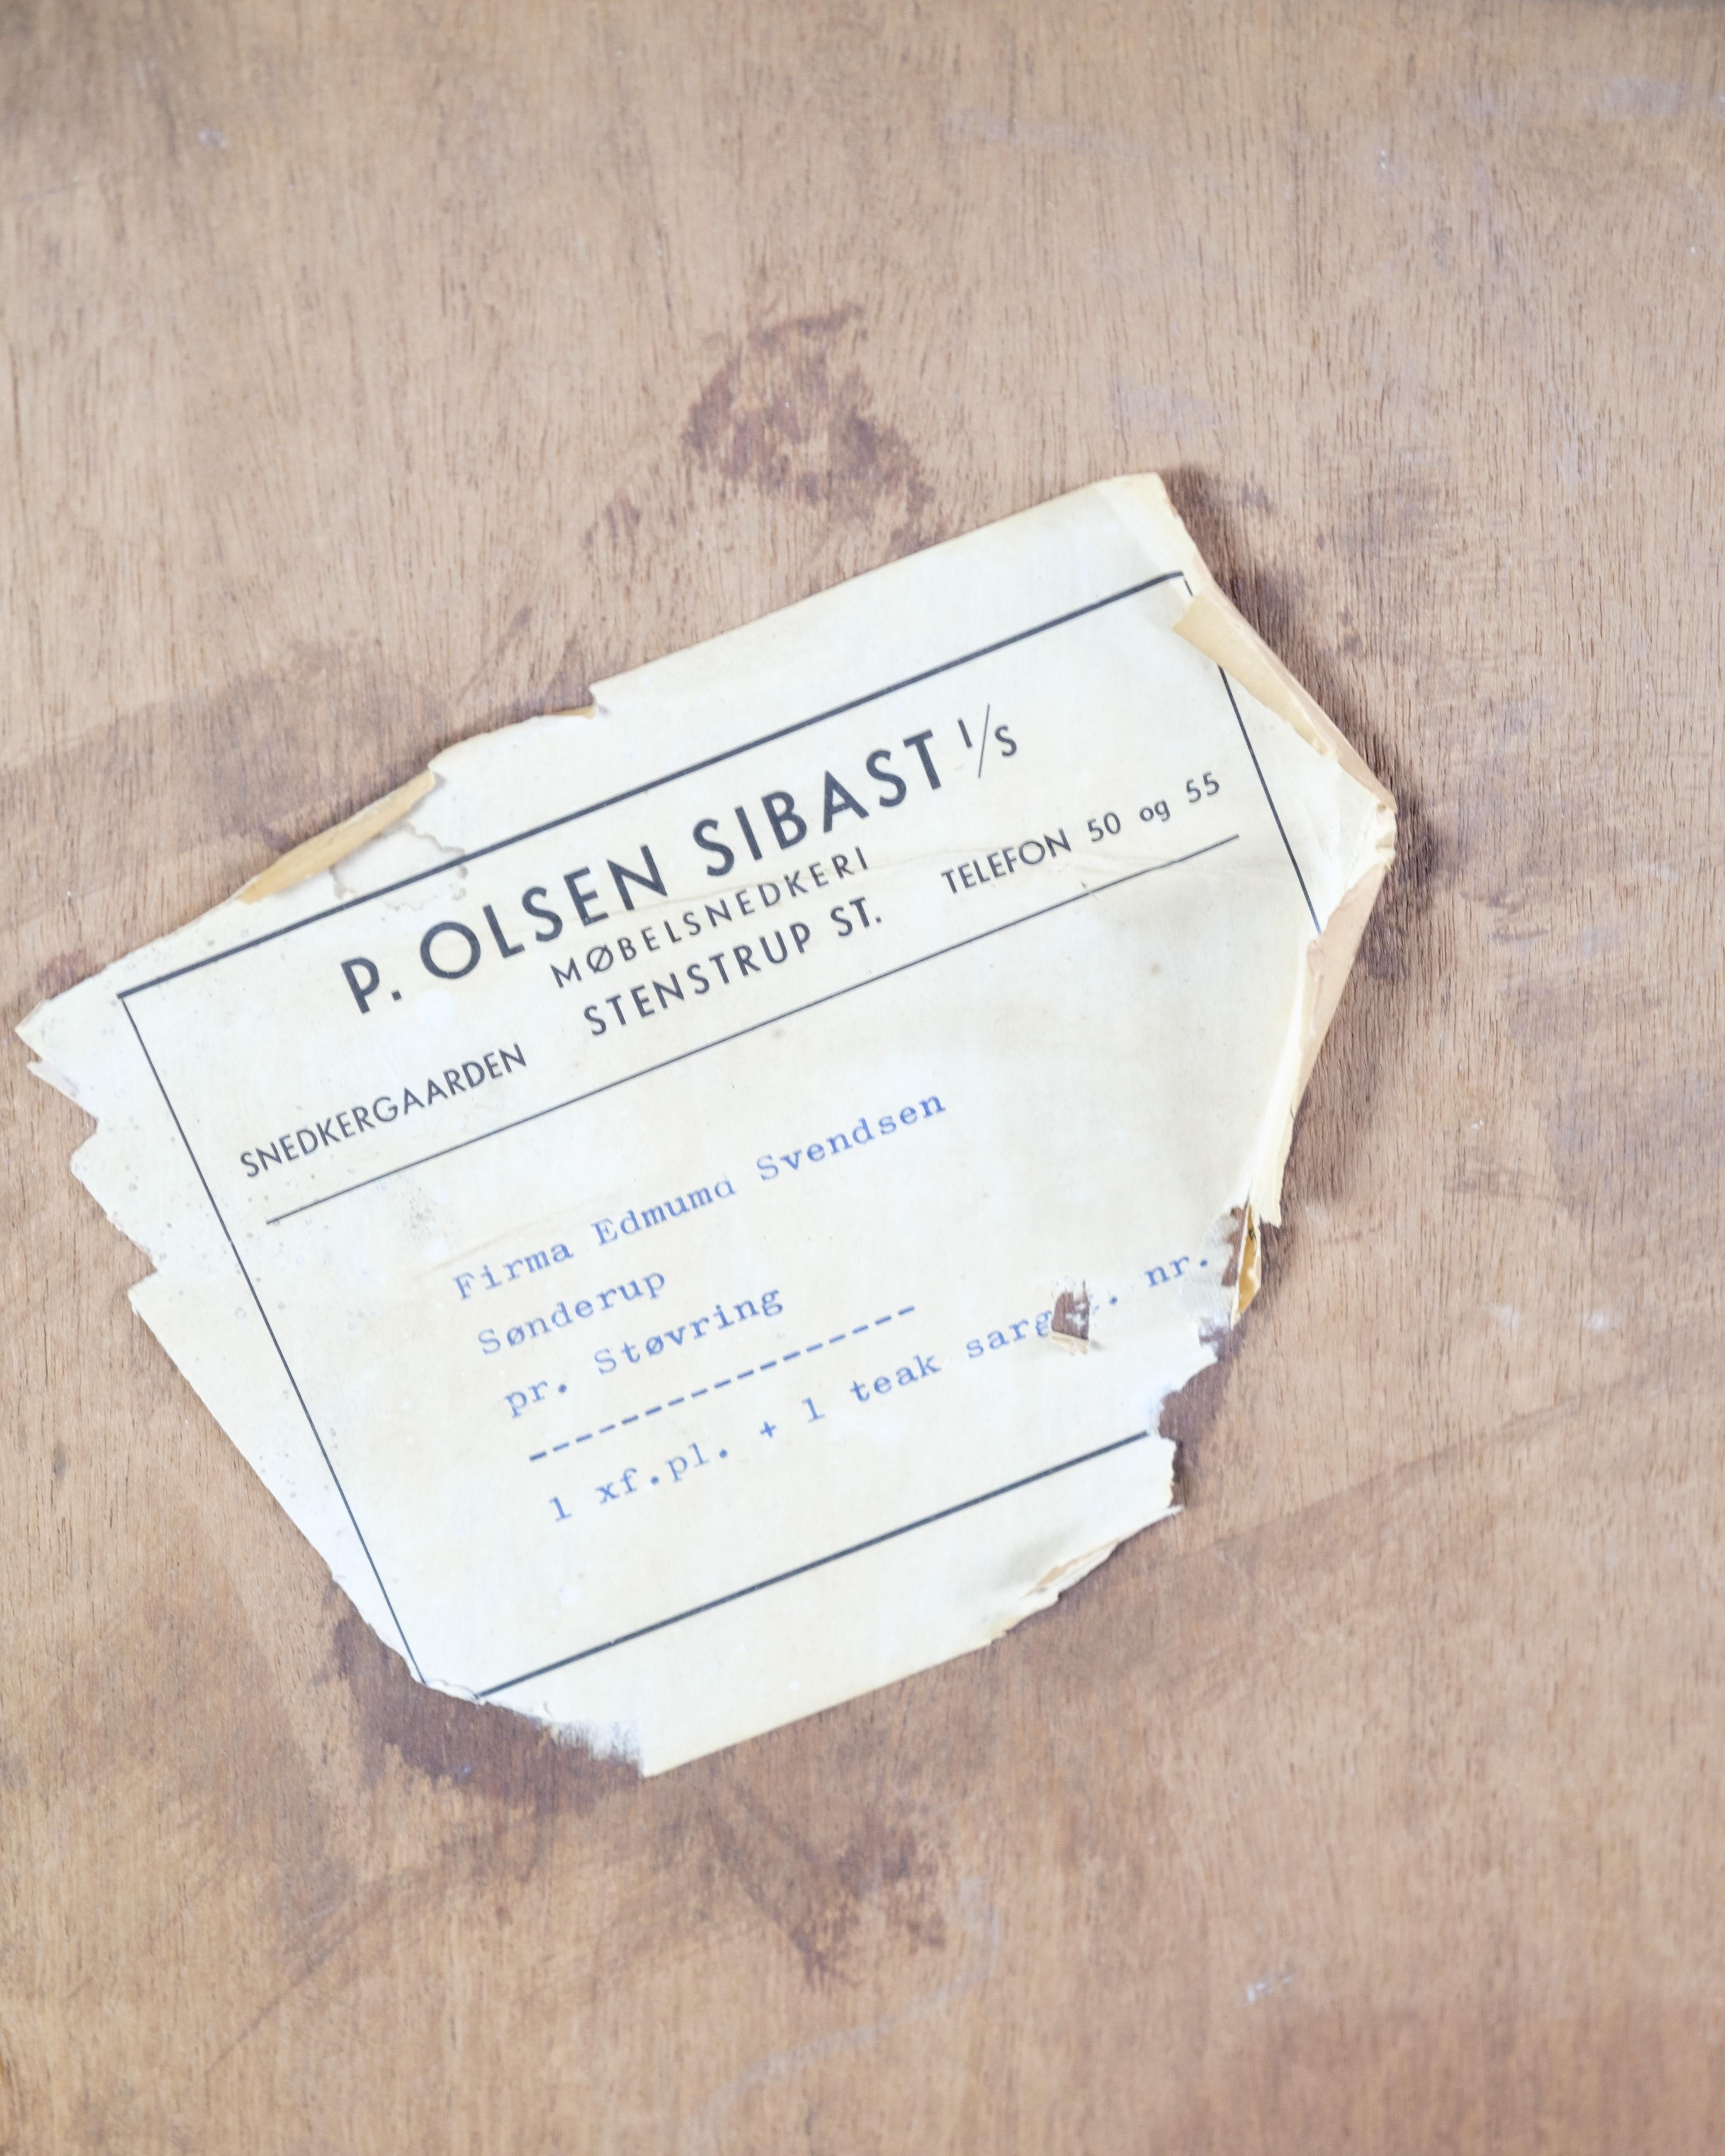 P. OLSEN SIBAST I/S
MØBELSNEDKERI
SNEDKERGAARDEN STENSTRUP ST. TELEFON 50 og 55
Firma Edmund Svendsen
Sønderup
pr. Støvring
----------------
1 xf.pl. + 1 teak nr.